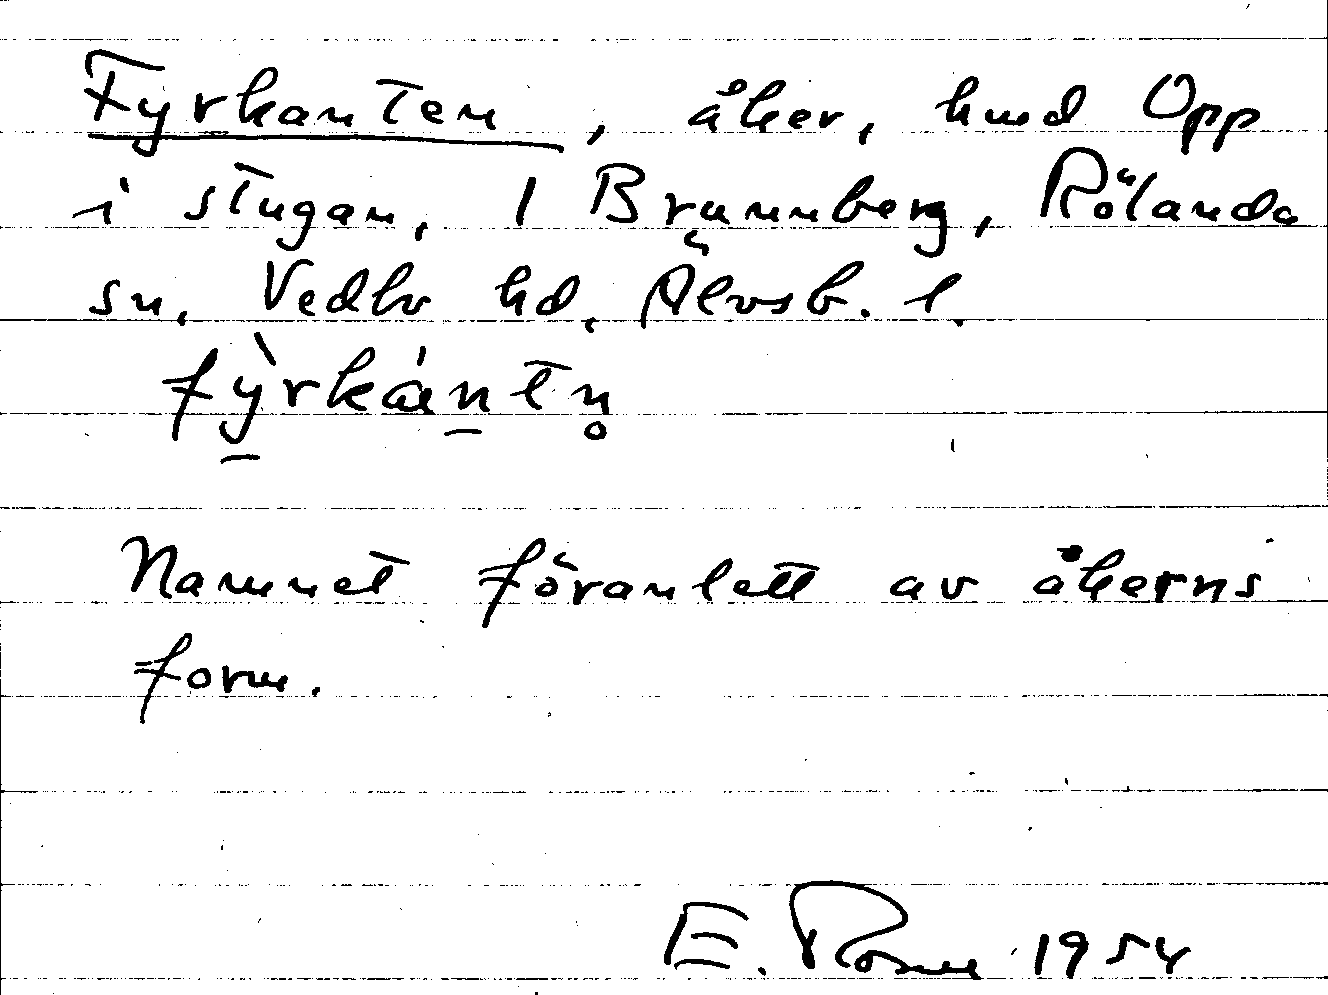 Fyrkanten, åker, hmd Opp
i stugan, 1 Brunnberg, Rölanda
sn, Vedbo hd, Älvsb. l.
fỳrkántn̥
Namnet föranlett av åkerns
form.
E. 1954